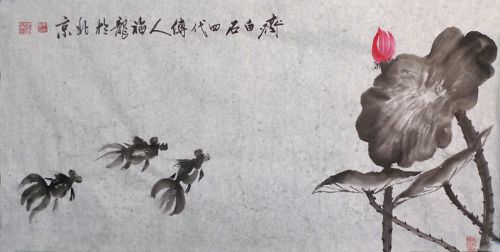 齊白石四代傳人福龍於北京